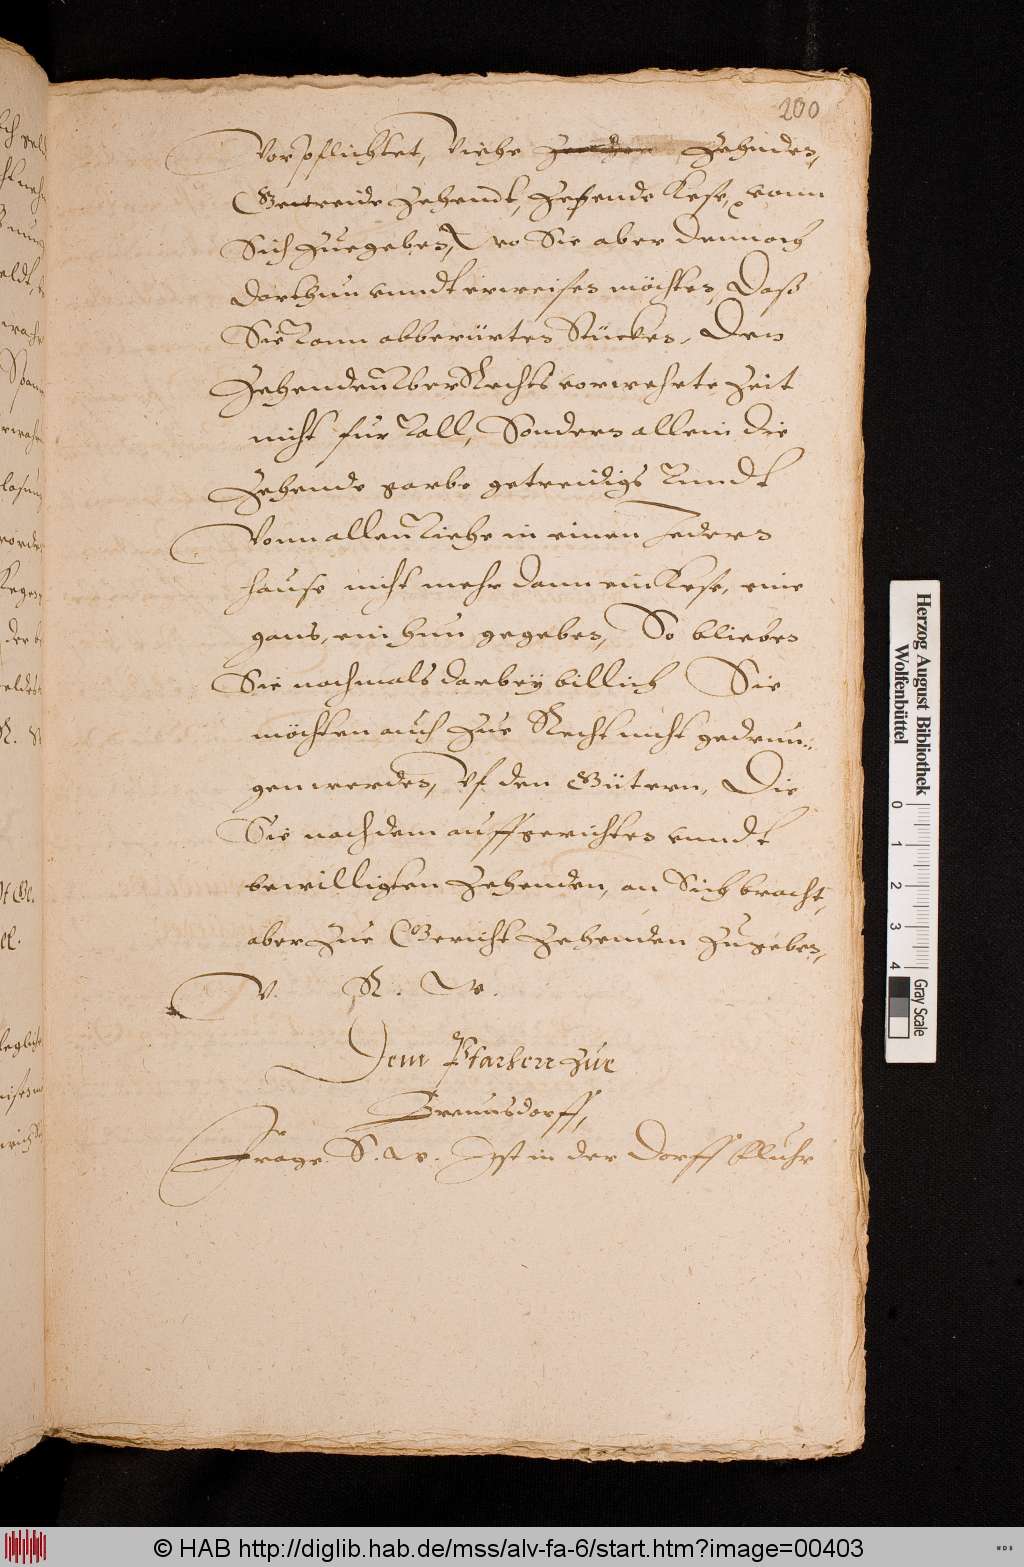 200
Vorpflichtet, Viehe Zehnden,
Getreide Zehendt, Zehende Kese, vonn
Sich Zuegeben, wo Sie aber dennoch
darthun vnndt erweisen möchten, Daß
Sie Vonn abberürten Stücken, Den
Zehenden Vber Rechts vorwehrte Zeit
nicht fur Vall, Sondern allein die
Zehende garbe getreidigs Vnndt
Vonn allen Viehe in einen Jedern
hause nicht mehr dann ein Kese, eine
gans, ein hun gegeben, So blieben
Sie nochmals darbey billich Sie
möchten auch Zue Recht nicht gedrun-
gen werden, Vf den Gütern, Die
Sie nach dem auffgerichten vnndt
bewilligten Zehenden, an Sich bracht,
aber Zue Gericht Zehenden Zugeben,
V. R. W.
Dem Pfarherr Zue
Breunsdorff,
Frage. S. W. Ist in der Dorff Fluhr
Herzog August Bibliothek
Wolfenbüttel
0 1 2 3 4
Gray Scale
© HAB http://diglib.hab.de/mss/alv-fa-6/start.htm?image=00403